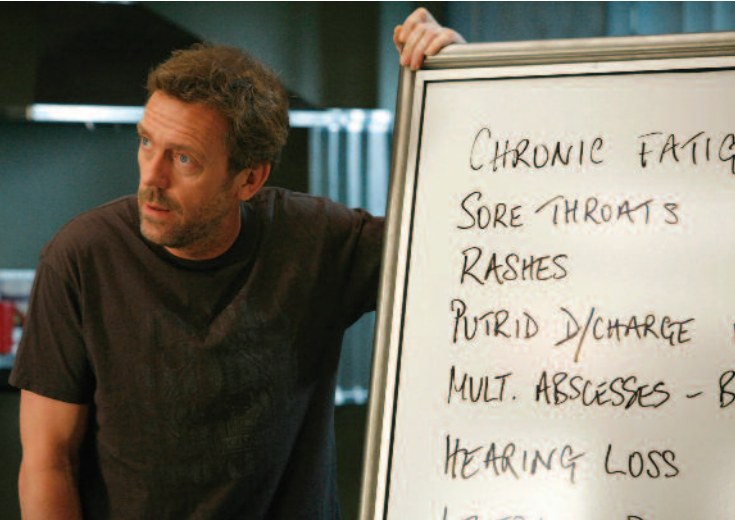 CHRONIC FATIG
SORE THROATS
RASHES
PUTRID D/CHARGE
MULT. ABSCESSES - B
HEARING LOSS